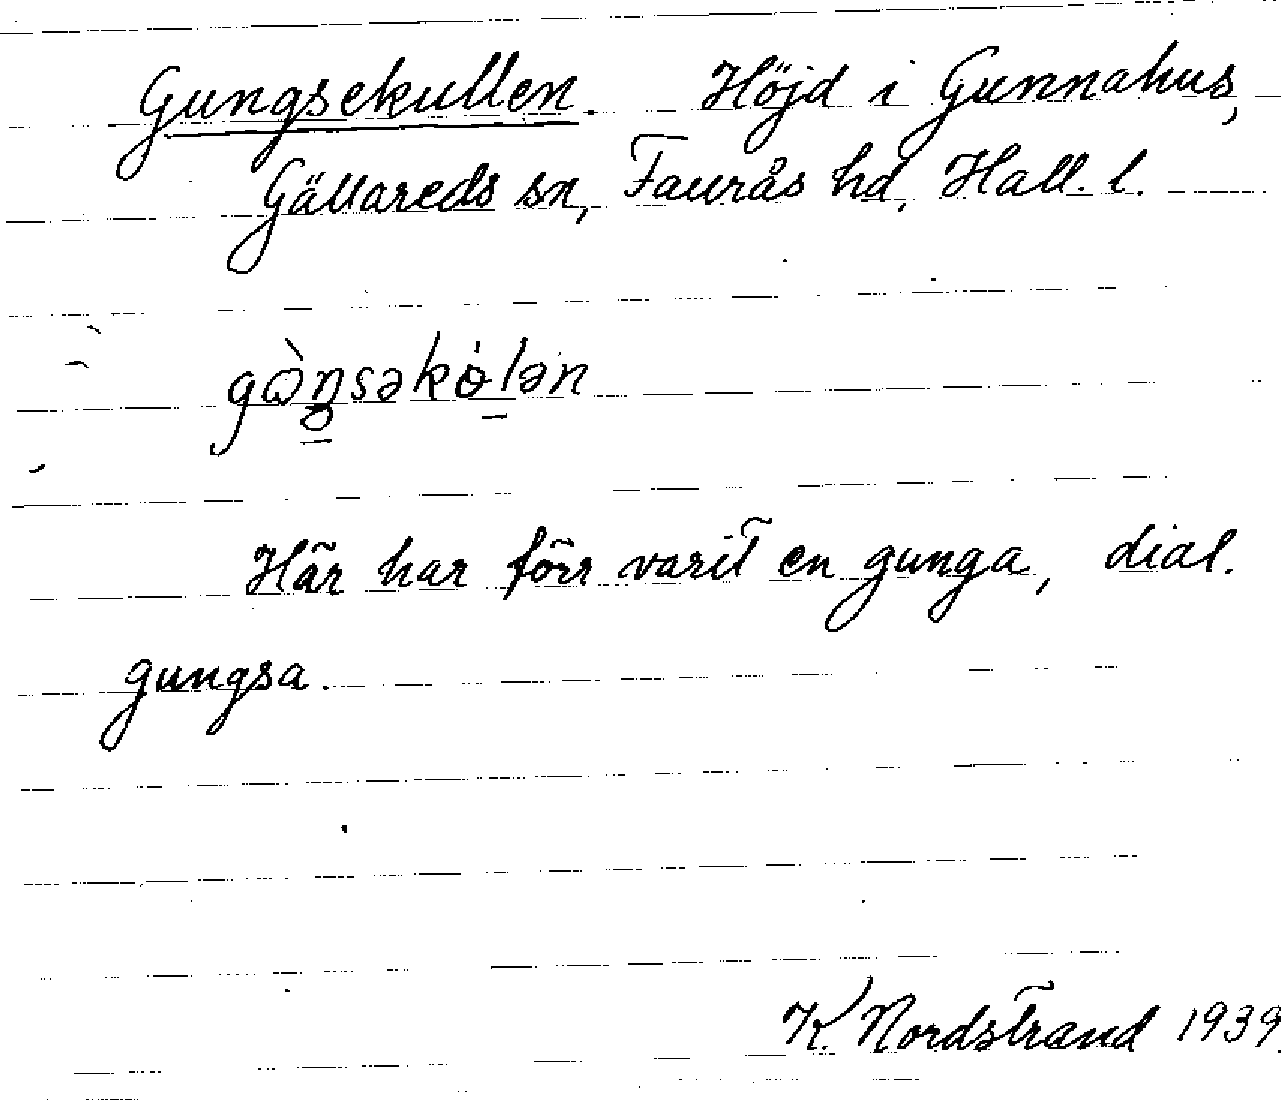 Gungsekullen. Höjd i Gunnahus,
Gällareds sn, Faurås hd, Hall. l.
gò̱ŋsəkȯ̱lən
Här har förr varit en gunga, dial.
gungsa.
K. Nordstrand 1939.